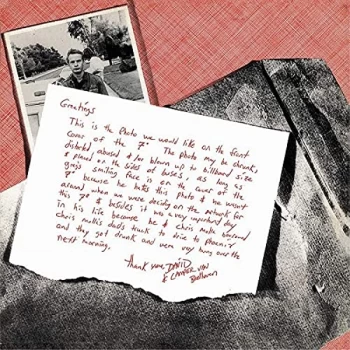 Greetings
This is the photo we would like on the front
cover of the 7". The photo may be shrunk,
distorted abused & / or blown up to billboard size
& placed on the sides of buses, as long as
greg's smiling face is on the cover of the
7" because he hates this photo & he wasn't
around when we were deciding on the artwork for
this 7" & besides it was a very important day
in his life because he & chris molla borrowed
chris molla's dads truck to drive to phoenix
and they got drunk and were very hung over the
next morning.
thank you, DAVID
& CAMPER VAN
Beethoven